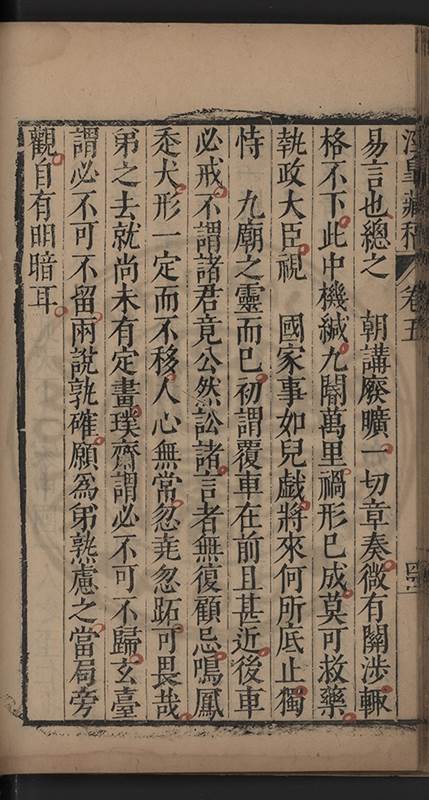 涇臯藏稿 卷五 四
易言也總之 朝講廢曠一切章奏微有關渉輙
格不下此中機緘九閽萬里禍形已成莫可救藥
執政大臣視 國家事如兒戲將來何所底止獨
恃 九廟之靈而已初謂覆車在前且甚近後車
必戒不謂諸君竟公然訟諸言者無復顧忌鳴鳳
忝犬形一定而不移人心無常忽尭忽跖可畏哉
弟之去就尚未有定畫璞齋謂必不可不歸玄臺
謂必不可不留兩說孰確願爲弟熟慮之當局旁
觀自有明暗耳